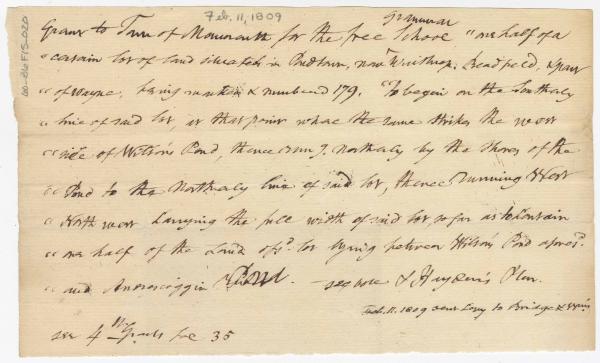 Feb. 11, 1809
60-86F15-020
Grammar
Grant to Town of Monmouth for the free School "one half of a
"certain lot of land situated in Pondtown, now Winthrop, Readfield, & part
"of Wayne, being marked & numbered 179. "To begin on the Southerly
"line of said lot, at that point where the same strikes the west
"side of Wilson's Pond, thence runng. northerly by the shores of the
"Pond to the Northerly line of said lot, thence running West
"North west carrying the full width of said lot, so far as to contain
"one half of the Land of sd. lot lying between Wilson's Pond aforesd.
"and Androscoggin Pond. — see vote & Plan.
Feb. 11. 1809 sent Copy to Bridge &
see 4th Grants fol 35